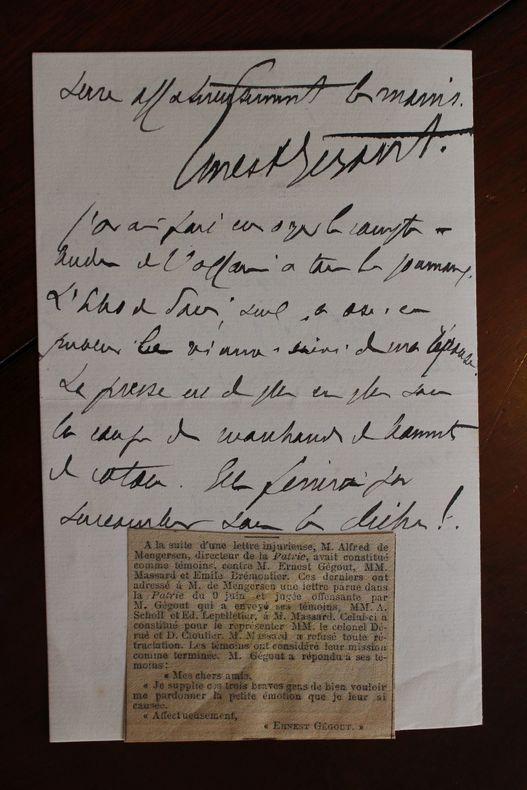 serre affectueusement les mains.
Ernest Gégout.
J'avais fait envoyer le compte-
rendu de l'affaire à tous les journaux.
L'Echo de Paris, seul, a osé en
de ma réponse.
La presse est de plus en plus sous
la coupe de marchands de
de coton. Elle finira par
succomber sous la !.
A la suite d'une lettre injurieuse, M. Alfred de
Mengersen, directeur de la Patrie, avait constitué
comme témoins, contre M. Ernest Gégout, MM.
Massard et Emile Brémontier. Ces derniers ont
adressé à M. de Mengersen une lettre parue dans
la Patrie du 9 juin et jugée offensante par
M. Gégout qui a envoyé ses témoins, MM. A.
Scholl et Ed. Lepelletier, à M. Massard. Celui-ci a
constitué pour le représenter MM. le colonel Dé-
rué et D. Cloutier. M. Massard a refusé toute ré-
tractation. Les témoins ont considéré leur mission
comme terminée. M. Gégout a répondu à ses té-
moins :
« Mes chers amis,
« Je supplie ces trois braves gens de bien vouloir
me pardonner la petite émotion que je leur ai
causée.
« Affectueusement,
« ERNEST GÉGOUT. »